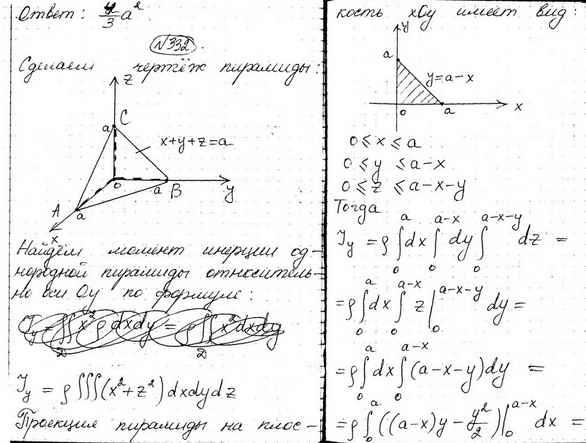 Ответ: 4/3 a²
№332
Сделаем чертёж пирамиды:
z
a C
x+y+z=a
A a
o
a B
y
x
Найдём момент инерции од-
нородной пирамиды относитель-
но оси Oy по формуле:
I_y = ρ∭(x²+z²)dxdydz
Проекция пирамиды на плос-
кость xOy имеет вид:
y
a
y=a-x
o a x
0≤x≤a
0≤y≤a-x
0≤z≤a-x-y
Тогда
I_y = ρ∫₀^a dx ∫₀^(a-x) dy ∫₀^(a-x-y) dz =
= ρ∫₀^a dx ∫₀^(a-x) z|₀^(a-x-y) dy =
= ρ∫₀^a dx ∫₀^(a-x) (a-x-y)dy =
= ρ∫₀^a ((a-x)y - y²/2)|₀^(a-x) dx =